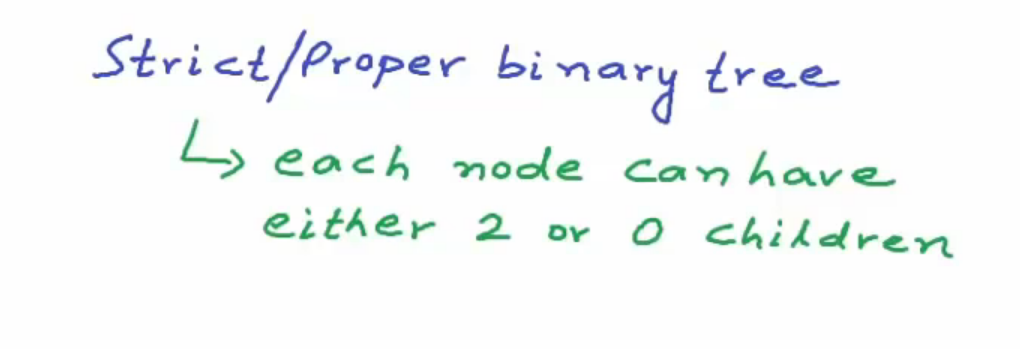 Strict/Proper binary tree
↳ each node can have
either 2 or 0 children